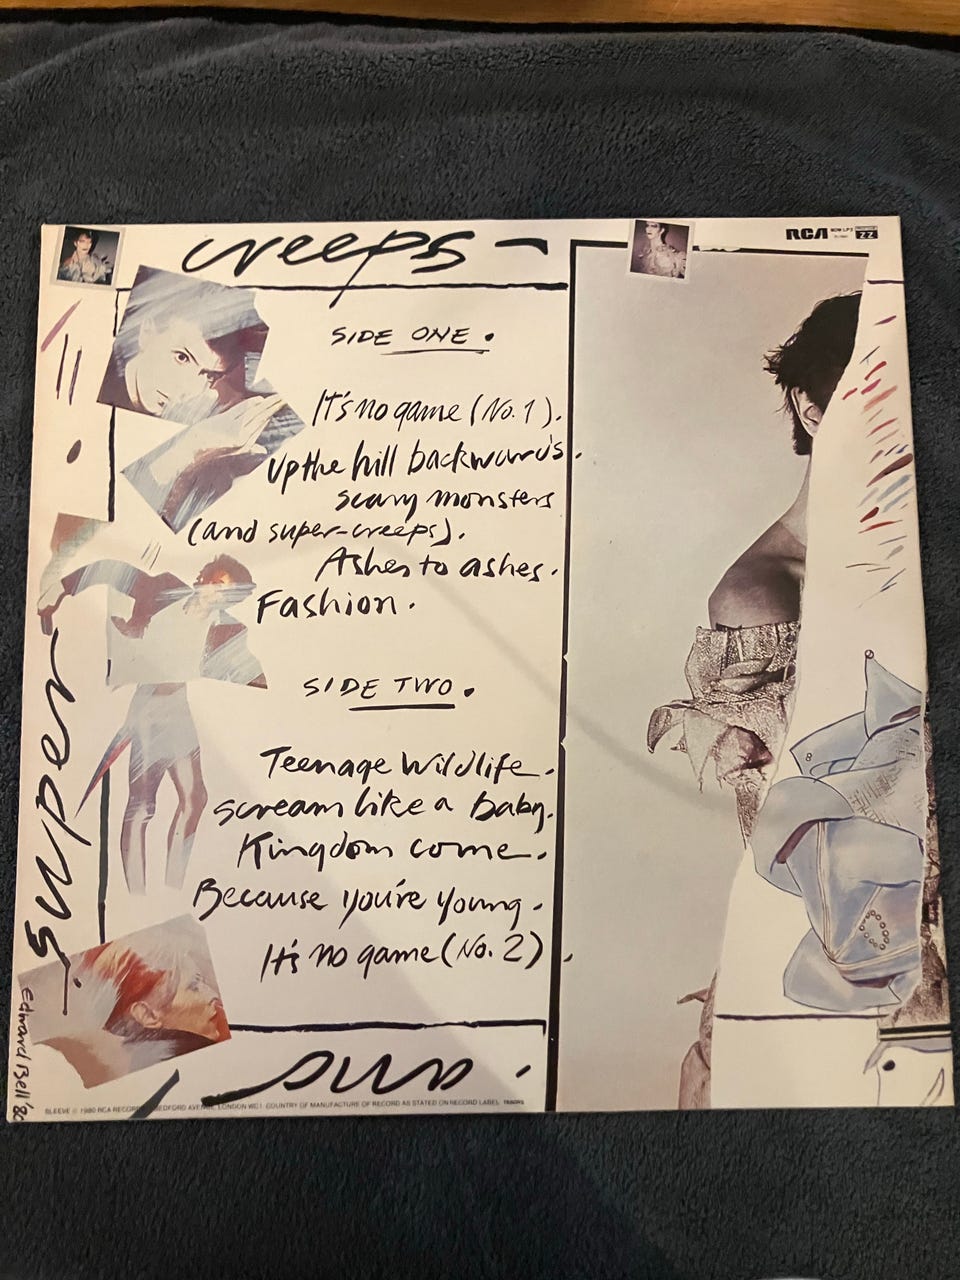 creeps
RCA BOW LP 2
ZZ
SIDE ONE.
It's no game (No. 1).
Up the hill backwards.
scary monsters
(and super-creeps).
Ashes to ashes.
Fashion.
SIDE TWO.
Teenage Wildlife.
scream like a baby.
Kingdom come.
Because you're young.
It's no game (No. 2).
super
Edward Bell '80
SLEEVE © 1980 RCA RECORDS BEDFORD AVENUE, LONDON WC1 COUNTRY OF MANUFACTURE OF RECORD AS STATED ON RECORD LABEL